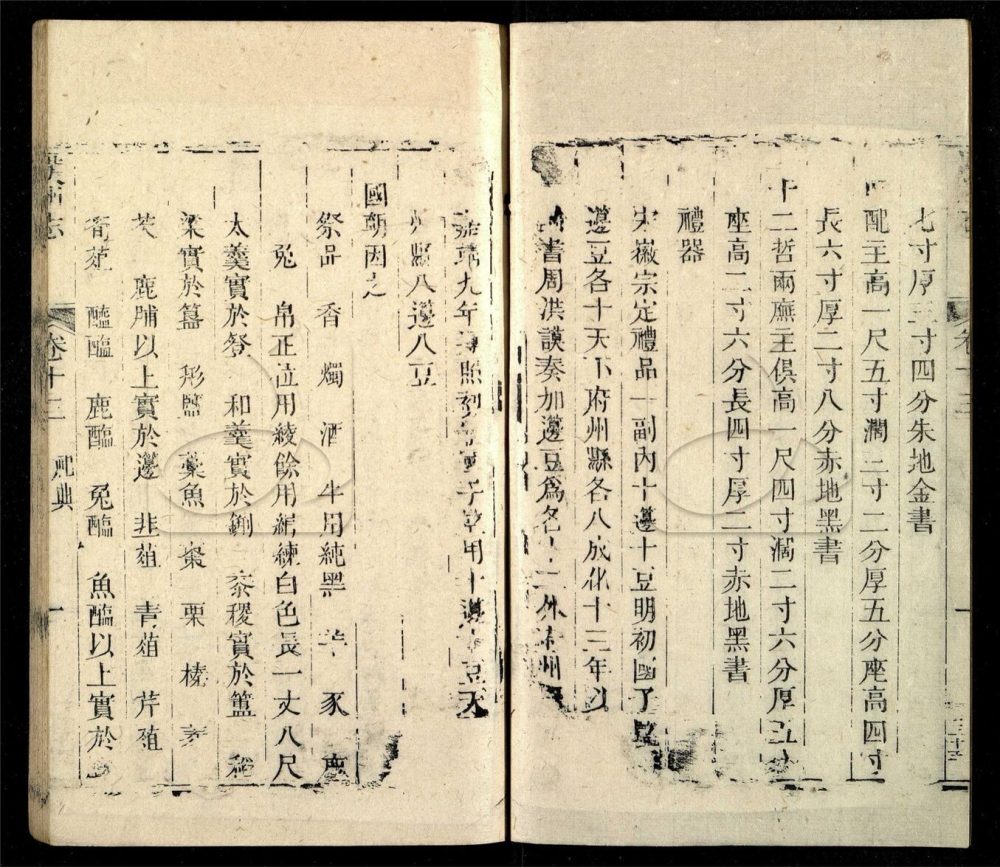 七寸厚三寸四分朱地金書
四配主高一尺五寸濶二寸二分厚五分座高四寸
長六寸厚二寸八分赤地黑書
十二哲兩廡主俱高一尺四寸濶二寸六分厚五寸
座高二寸六分長四寸厚二寸赤地黑書
禮器
宋徽宗定禮品一副內十籩十豆明初國子監
籩豆各十天下府州縣各八成化十三年以
尚書周洪謨奏加籩豆爲各十二外府州
嘉靖九年國子監用十籩十豆天
州縣八籩八豆
國朝因之
祭品 香 燭 酒 牛用純黑 羊 豕 鹿
兔 帛正位用綾餘用絹練白色長一丈八尺
太羹實於登 和羹實於鉶 黍稷實於簠 稻
粱實於簋 形鹽 藁魚 棗 栗 榛 菱
芡 鹿脯以上實於籩 韭菹 青菹 芹菹
筍菹 醓醢 鹿醢 兔醢 魚醢以上實於
志 卷十三 祀典 一